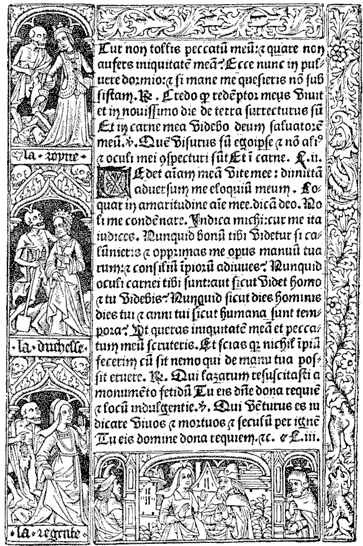 Cur non tollis peccatū meū:⁊ quare non
aufers iniquitatē meā? Ecce nunc in pul
uere dormio:⁊ si mane me quesieris nō sub
sistam. ℟. Credo ꝙ redēptor meus viuit
et in nouissimo die de terra surrecturus sū
Et in carne mea videbo deum saluatorē
meū. ℣. Quē visurus sū ego ipse ⁊ nō aliꝰ
⁊ oculi mei ꝯspecturi sūt Et ī carne. L. ii.
Tedet aīam meā vite mee: dimittā
aduersum me eloquiū meum. Lo-
quar in amaritudine aīe mee. dicā deo. No
li me condēnare. Indica michi: cur me ita
iudices. Nunquid bonū tibi videtur si ca-
lūnieris ⁊ opprimas me opus manuū tua
rum: ⁊ consiliū īpiorū adiuues? Nunquid
oculi carnei tibi sunt: aut sicut videt homo
⁊ tu videbis? Nunquid sicut dies hominis
dies tui ⁊ anni tui sicut humana sunt tem-
pora? Ut queras iniquitatē meā et pecca-
tum meū scruteris. Et scias qꝛ nichil īpiū
fecerim cū sit nemo qui de manu tua pos-
sit eruere. ℟. Qui lazarum resuscitasti a
monumēto fetidū Tu eis dñe dona requiē
⁊ locū indulgentie. ℣. Qui vēturus es iu
dicare viuos ⁊ mortuos ⁊ seculū per ignē
Tu eis domine dona requiem.⁊c. L. iii.
la royne
la duchesse
la regente